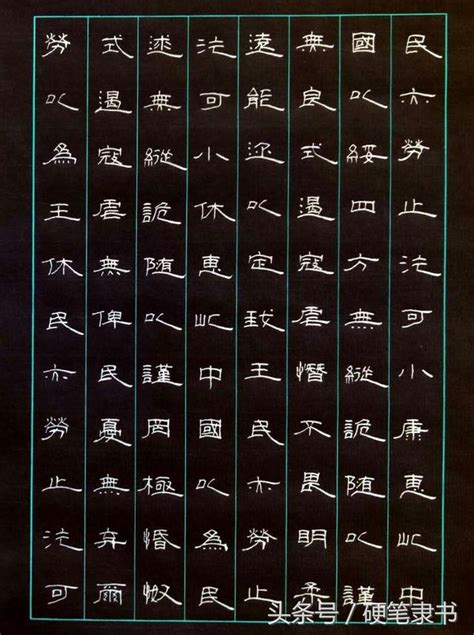 民亦勞止汔可小康惠此中
國以綏四方無縱詭随以謹
無良式遏寇虐憯不畏明柔
遠能迩以定我王民亦勞止
汔可小休惠此中國以為民
逑無縱詭随以謹罔極惛怓
式遏寇虐無俾民憂無弃爾
勞以為王休民亦勞止汔可
头条号/硬笔隶书